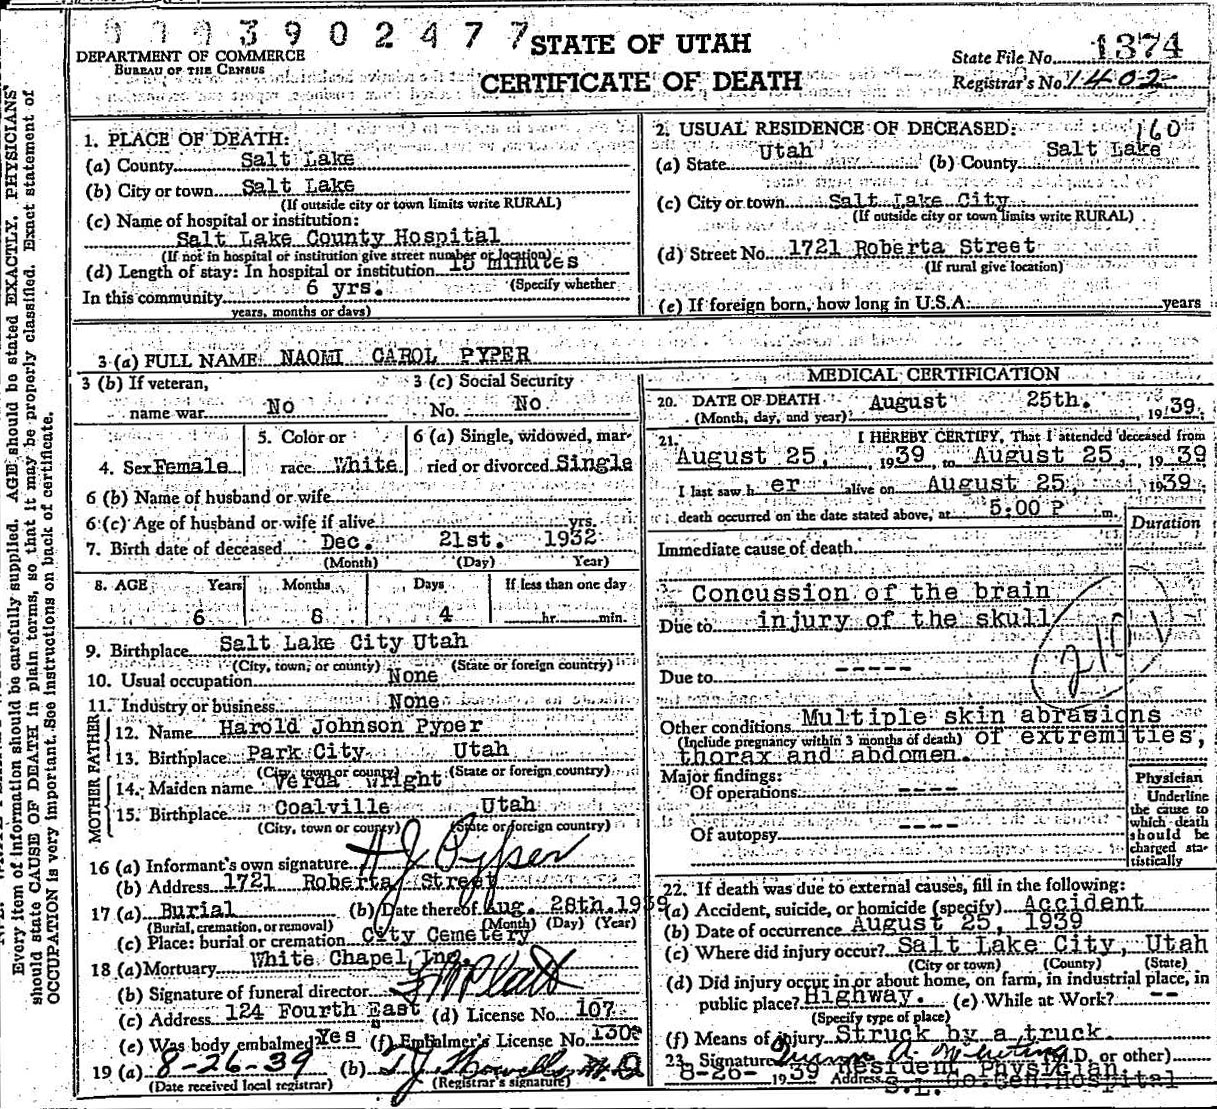 3 9 0 2 4 7 7
STATE OF UTAH
CERTIFICATE OF DEATH
DEPARTMENT OF COMMERCE
BUREAU OF THE CENSUS
State File No. 1374
Registrar's No. 1402
Every item of information should be carefully supplied. AGE should be stated EXACTLY. PHYSICIANS
should state CAUSE OF DEATH in plain terms, so that it may be properly classified. Exact statement of
OCCUPATION is very important. See instructions on back of certificate.
1. PLACE OF DEATH:
(a) County Salt Lake
(b) City or town Salt Lake
(If outside city or town limits write RURAL)
(c) Name of hospital or institution:
Salt Lake County Hospital
(If not in hospital or institution give street number or location)
(d) Length of stay: In hospital or institution 15 minutes
(Specify whether
In this community 6 yrs.
years, months or days)
2. USUAL RESIDENCE OF DECEASED: 160
(a) State Utah (b) County Salt Lake
(c) City or town Salt Lake City
(If outside city or town limits write RURAL)
(d) Street No. 1721 Roberta Street
(If rural give location)
(e) If foreign born, how long in U.S.A. years
3 (a) FULL NAME NAOMI CAROL PYPER
3 (b) If veteran, name war No
3 (c) Social Security No. No.
4. Sex Female
5. Color or race White
6 (a) Single, widowed, married or divorced Single
6 (b) Name of husband or wife
6 (c) Age of husband or wife if alive yrs.
7. Birth date of deceased Dec. 21st. 1932
(Month) (Day) Year)
8. AGE Years Months Days If less than one day
6 8 4 hr. min.
9. Birthplace Salt Lake City Utah
(City, town, or county) (State or foreign country)
10. Usual occupation None
11. Industry or business None
FATHER
12. Name Harold Johnson Pyper
13. Birthplace Park City Utah
(City, town or county) (State or foreign country)
MOTHER
14. Maiden name Verda Wright
15. Birthplace Coalville Utah
(City, town or county) (State or foreign country)
16 (a) Informant's own signature H J Pyper
(b) Address 1721 Roberta Street
17 (a) Burial (b) Date thereof Aug. 28th. 1939
(Burial, cremation, or removal) (Month) (Day) (Year)
(c) Place: burial or cremation City Cemetery
18 (a) Mortuary White Chapel, Inc.
(b) Signature of funeral director
(c) Address 124 Fourth East (d) License No. 107
(e) Was body embalmed Yes (f) Embalmer's License No. 130
19 (a) 8-26-39 (b) M.D.
(Date received local registrar) (Registrar's signature)
MEDICAL CERTIFICATION
20. DATE OF DEATH August 25th. 1939.
(Month, day, and year)
21. I HEREBY CERTIFY, That I attended deceased from
August 25, 1939 to August 25, 1939
I last saw her alive on August 25, 1939.
death occurred on the date stated above, at 5:00 P m.
Duration
Immediate cause of death
Concussion of the brain
Due to injury of the skull
Due to -----
Other conditions Multiple skin abrasions
(Include pregnancy within 3 months of death) of extremities,
thorax and abdomen.
Major findings:
Of operations ----
Of autopsy ----
Physician
Underline the cause to which death should be charged statistically
22. If death was due to external causes, fill in the following:
(a) Accident, suicide, or homicide (specify) Accident
(b) Date of occurrence August 25, 1939
(c) Where did injury occur? Salt Lake City, Utah
(City or town) (County) (State)
(d) Did injury occur in or about home, on farm, in industrial place, in
public place? Highway. (e) While at Work? --
(Specify type of place)
(f) Means of injury Struck by a truck.
23. Signature (M.D. or other)
Resident Physician
8-26- 1939 Address S.L. Co. Gen. Hospital